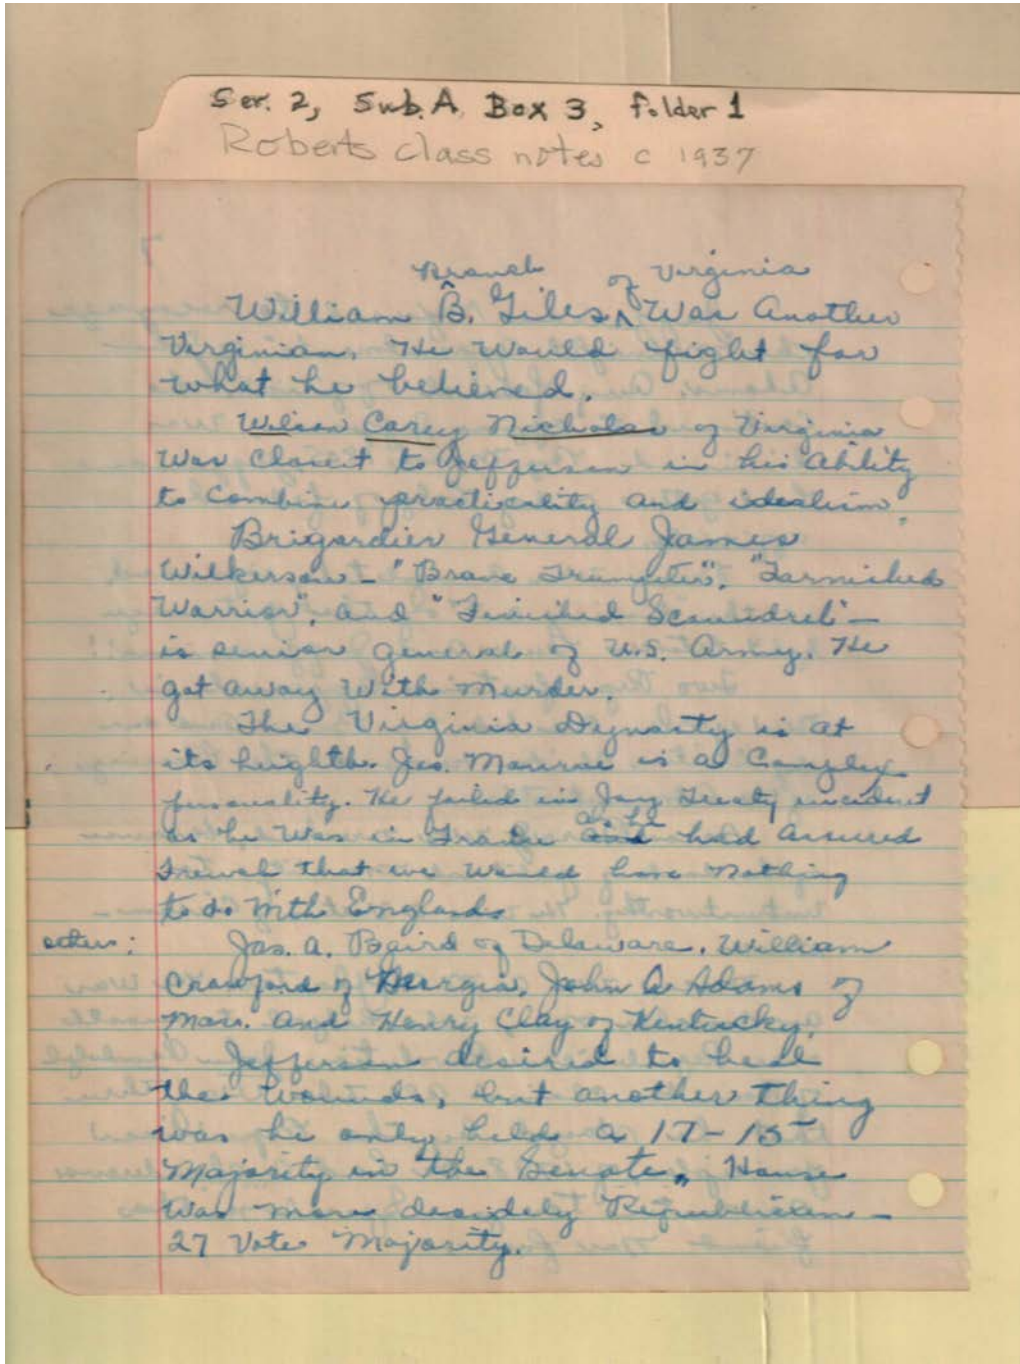 Ser. 2, Sub. A Box 3, folder 1
Roberts class notes c 1937
7
Branch of Virginia
William B. Giles, was another
Virginian. He would fight for
what he believed.
Wilson Carey Nicholas of Virginia
was closest to Jefferson in his ability
to combine practicality and idealism.
Brigardier General James
Wilkerson - "Brave Trumpter", "Tarnished
Warrior", and "Finished Scoundrel" -
is senior general of U.S. Army. He
got away with murder.
The Virginia Dynasty is at
its heighth. Jas. Monroe is a complex
personality. He failed in Jay Treaty incident
as he was in France as he had assured
French that we would have nothing
to do with England.
Jas. A. Baird of Delaware, William
Crawford of Georgia, John Q Adams of
Mass. and Henry Clay of Kentucky.
Jefferson desired to heal
the wounds, but another thing
was he only held a 17-15
majority in the Senate, House
was more desidely Republican -
27 vote majority.